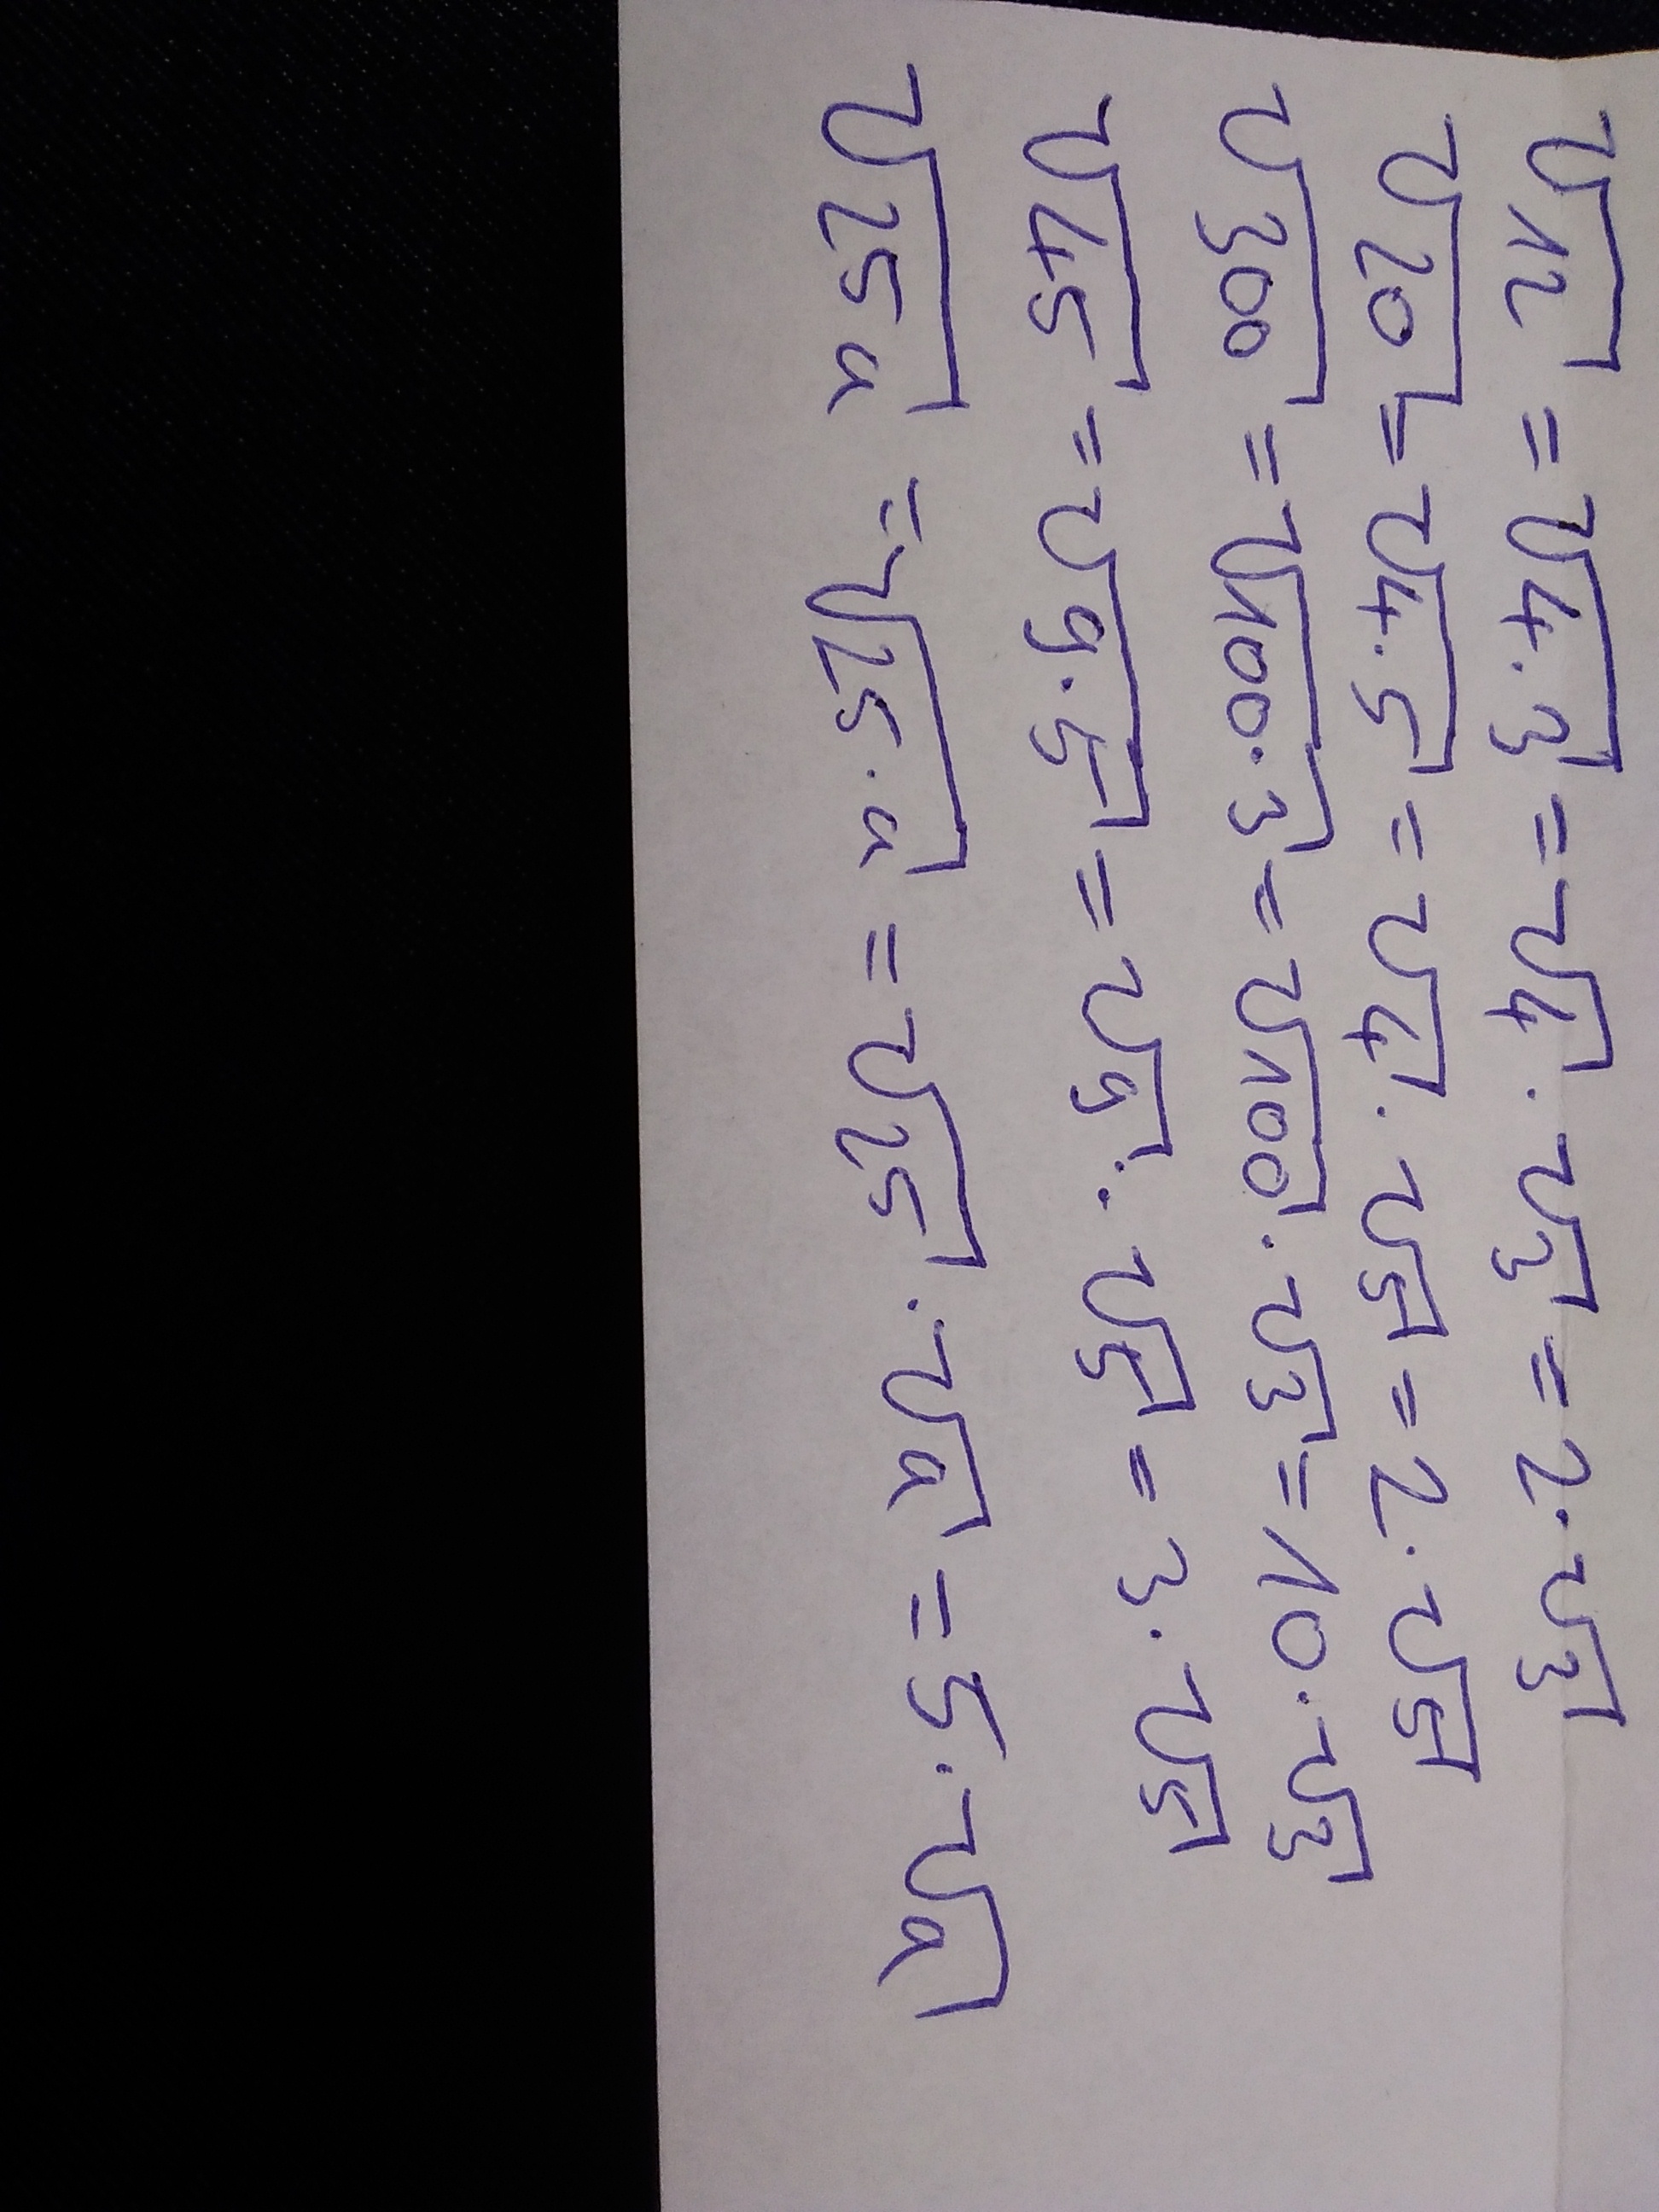 √12 = √4·3 = √4 · √3 = 2·√3
√20 = √4·5 = √4 · √5 = 2·√5
√300 = √100·3 = √100 · √3 = 10·√3
√45 = √9·5 = √9 · √5 = 3·√5
√25a = √25·a = √25 · √a = 5·√a